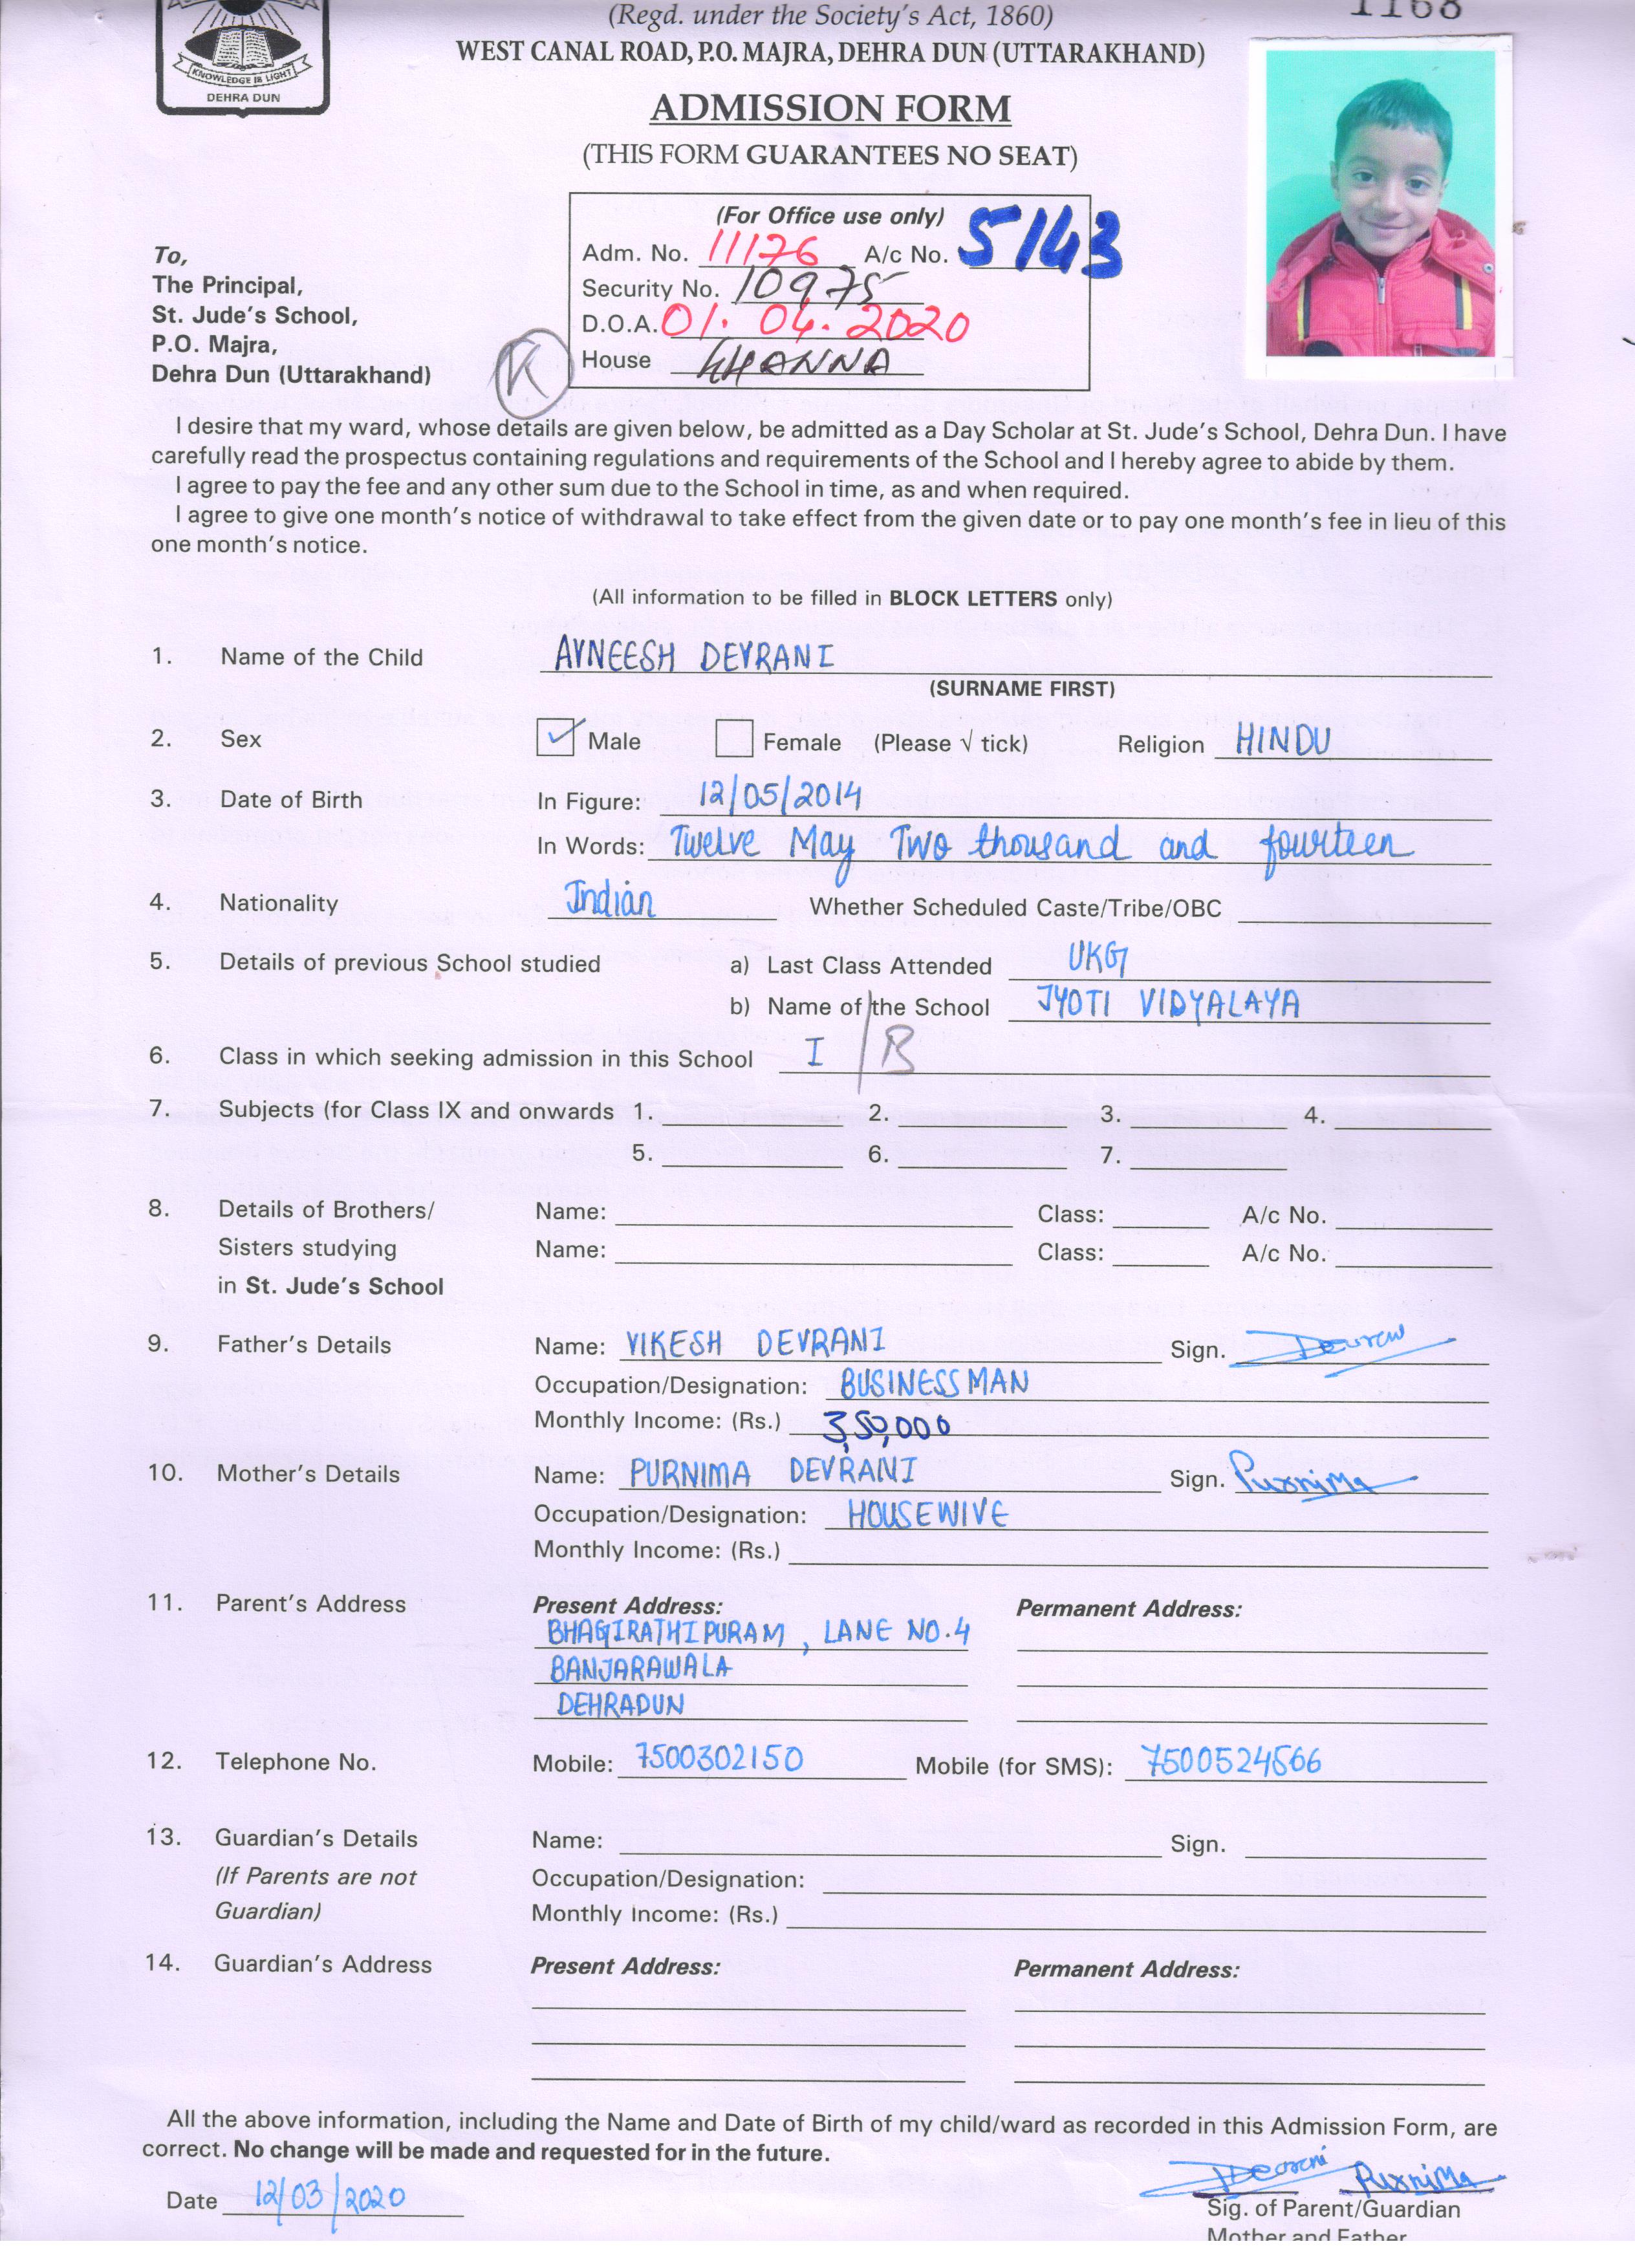 (Regd. under the Society's Act, 1860)
1168
WEST CANAL ROAD, P.O. MAJRA, DEHRA DUN (UTTARAKHAND)
KNOWLEDGE IS LIGHT
DEHRA DUN
ADMISSION FORM
(THIS FORM GUARANTEES NO SEAT)
(For Office use only)
Adm. No. 11176 A/c No. 5143
Security No. 10975
D.O.A. 01.04.2020
House KHANNA
K
To,
The Principal,
St. Jude's School,
P.O. Majra,
Dehra Dun (Uttarakhand)
I desire that my ward, whose details are given below, be admitted as a Day Scholar at St. Jude's School, Dehra Dun. I have
carefully read the prospectus containing regulations and requirements of the School and I hereby agree to abide by them.
I agree to pay the fee and any other sum due to the School in time, as and when required.
I agree to give one month's notice of withdrawal to take effect from the given date or to pay one month's fee in lieu of this
one month's notice.
(All information to be filled in BLOCK LETTERS only)
1. Name of the Child AVNEESH DEVRANI
(SURNAME FIRST)
2. Sex ✓ Male Female (Please √ tick) Religion HINDU
3. Date of Birth In Figure: 12/05/2014
In Words: Twelve May Two thousand and fourteen
4. Nationality Indian Whether Scheduled Caste/Tribe/OBC
5. Details of previous School studied a) Last Class Attended UKG
b) Name of the School JYOTI VIDYALAYA
6. Class in which seeking admission in this School I / B
7. Subjects (for Class IX and onwards 1. 2. 3. 4.
5. 6. 7.
8. Details of Brothers/ Name: Class: A/c No.
Sisters studying Name: Class: A/c No.
in St. Jude's School
9. Father's Details Name: VIKESH DEVRANI Sign. Devrani
Occupation/Designation: BUSINESSMAN
Monthly Income: (Rs.) 3,50,000
10. Mother's Details Name: PURNIMA DEVRANI Sign. Purnima
Occupation/Designation: HOUSEWIVE
Monthly Income: (Rs.)
11. Parent's Address Present Address: Permanent Address:
BHAGIRATHIPURAM, LANE NO.4
BANJARAWALA
DEHRADUN
12. Telephone No. Mobile: 7500302150 Mobile (for SMS): 7500524566
13. Guardian's Details Name: Sign.
(If Parents are not Occupation/Designation:
Guardian) Monthly Income: (Rs.)
14. Guardian's Address Present Address: Permanent Address:
All the above information, including the Name and Date of Birth of my child/ward as recorded in this Admission Form, are
correct. No change will be made and requested for in the future.
Devrani Purnima
Date 12/03/2020
Sig. of Parent/Guardian
Mother and Father